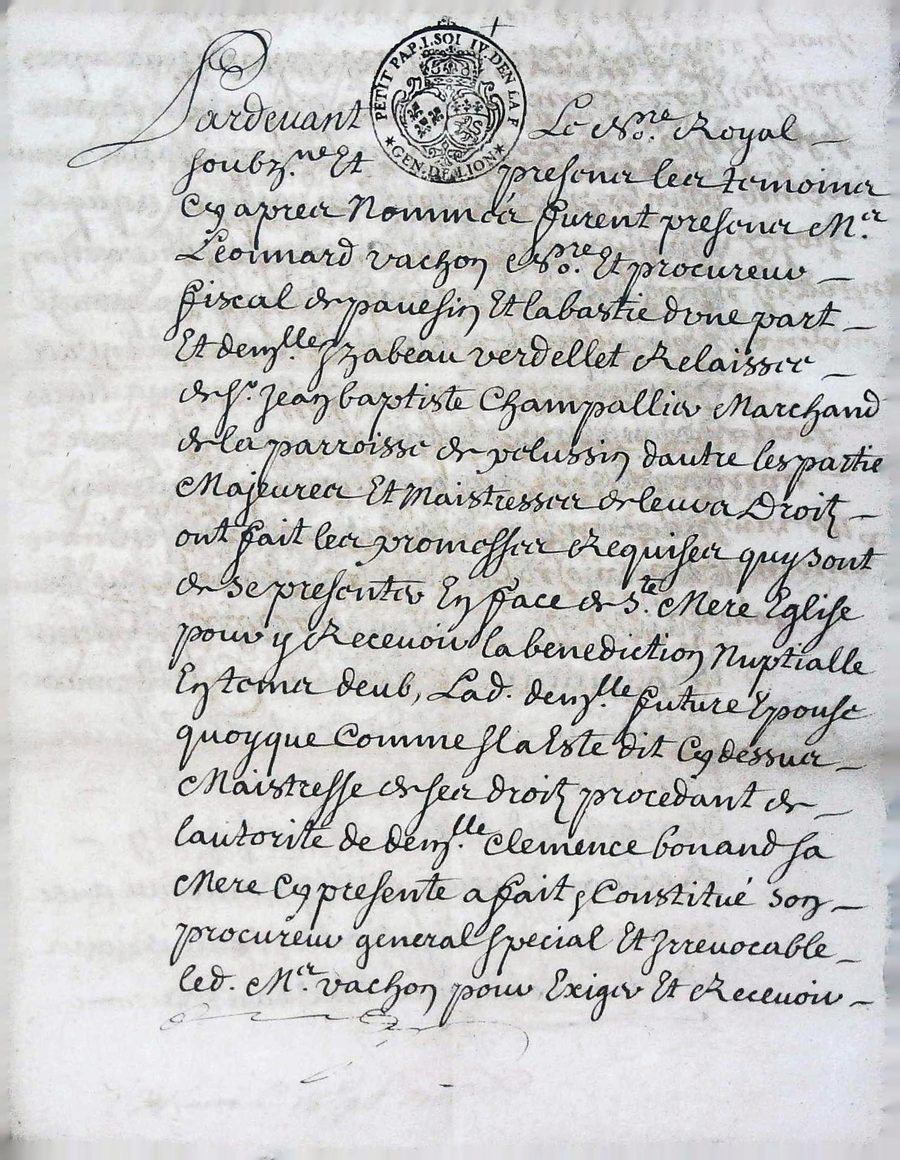 PETIT PAP. I. SOL IV. DEN. LA F
GEN. DE LION
Pardevant Le No.re Royal
soubz.ne Et presens les temoins
Cy apres Nommés furent presens M.r
Leonnard vachon No.re Et procureur
fiscal de pavesin Et labastie dvne part
Et dem.lle Yzabeau verdellet Relaissee
de S.r Jean baptiste Champallier Marchand
de la parroisse de pelussin dautre les partie
Majeures Et Maistresses de leurs Droitz
ont fait les promesses Requises quy sont
de se presenter En face de s.te Mere Eglise
pour y Recevoir la benediction Nuptialle
En tems deub, Lad. dem.lle future Epouse
quoyque Comme Il a Este dit Cy dessus
Maistresse de ses droitz procedant de
lautorité de dem.lle Clemence bonand sa
Mere Cy presente a fait, Constitué son
procureur general special Et Irrevocable
led. M.r vachon pour Exiger Et Recevoir